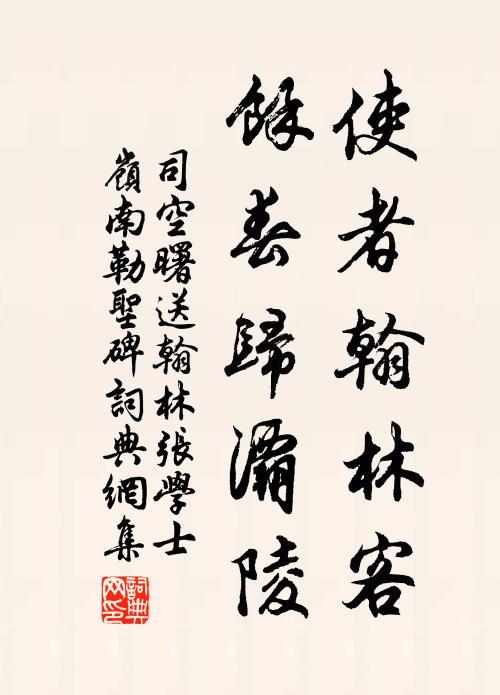 使者翰林客
餘春歸灞陵
司空曙送翰林張學士
嶺南勒聖碑詞典網集
詞典
网印